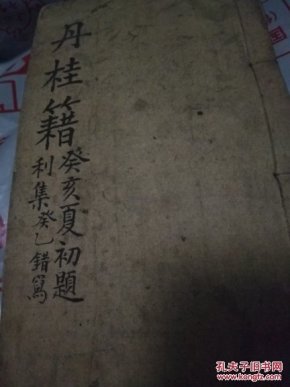 丹桂籍
癸亥夏初題
利集癸乙錯寫
孔夫子旧书网